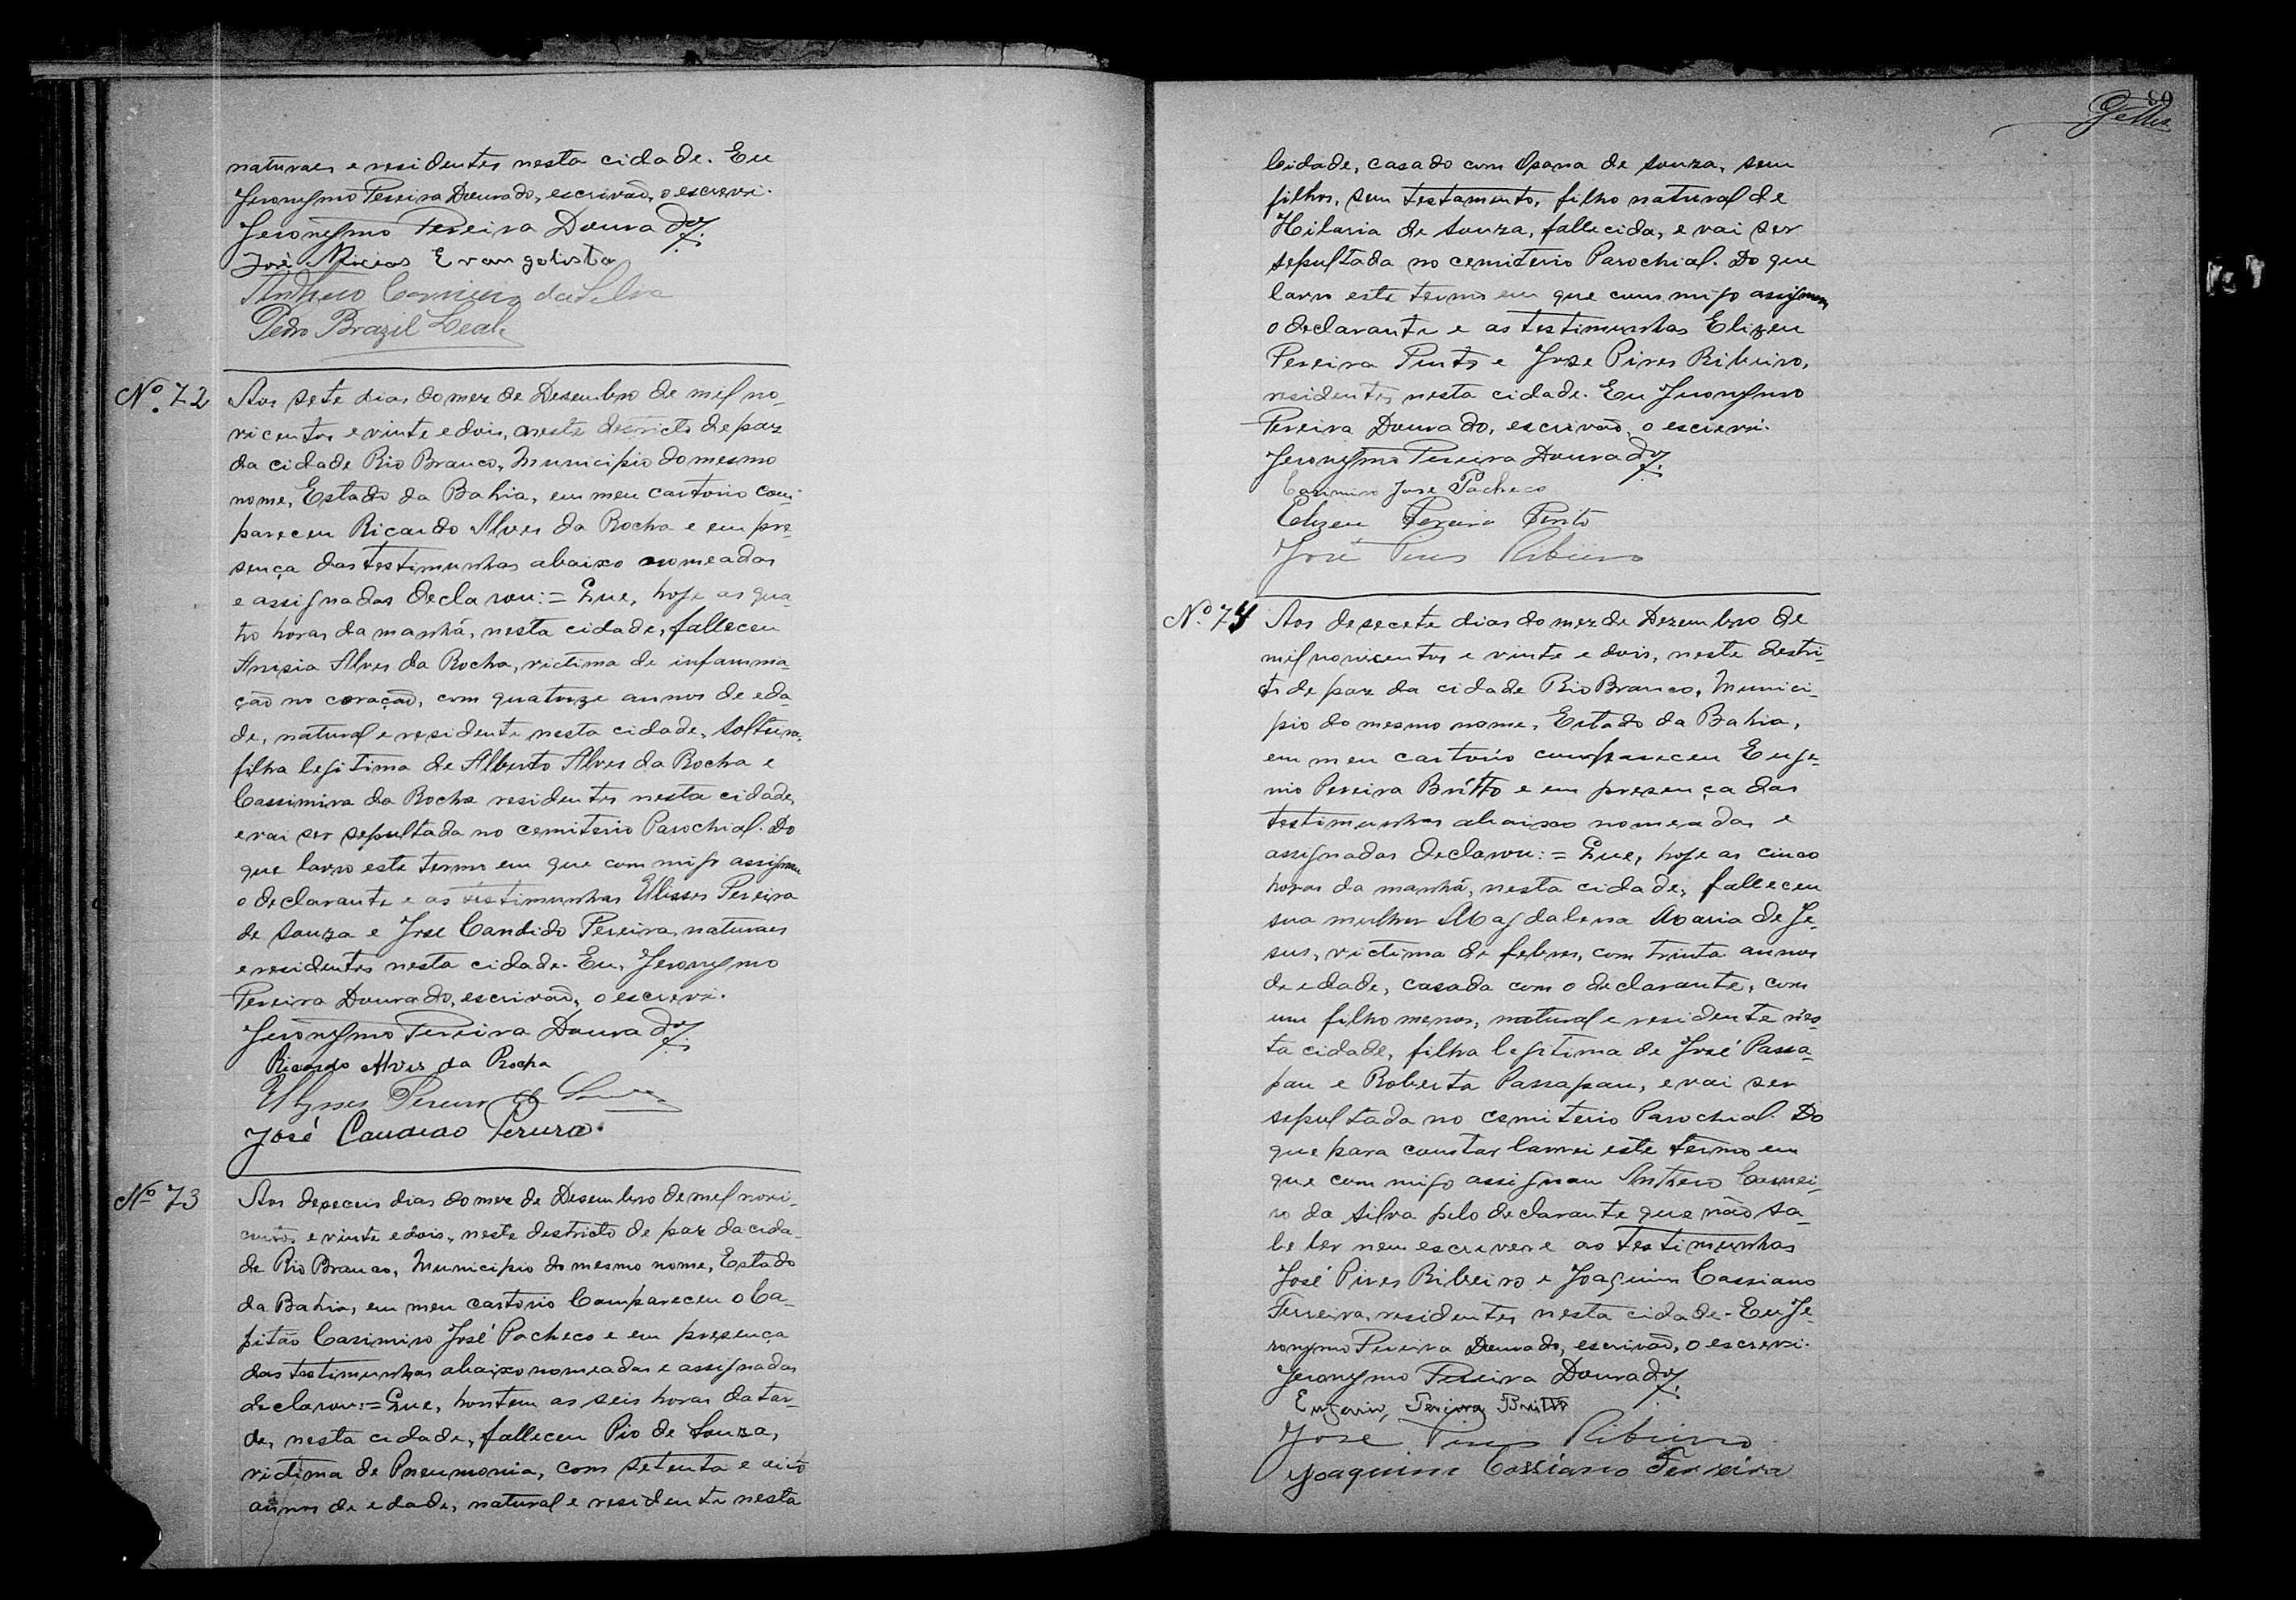 naturaes e residentes nesta cidade. Eu
Jeronymo Pereira Dourado, escrivão, o escrevi.
Jeronymo Pereira Dourado
José Evangelista
Anthero Carneiro da Silva
Pedro Brazil Leal
Nº. 72
Aos sete dias do mez de Desembro de mil no-
vicentos e vinte e dois, neste destricto de paz
da cidade Rio Branco, Municipio do mesmo
nome, Estado da Bahia, em meu cartorio com-
pareceu Ricardo Alves da Rocha e em pre-
sença das testimunhas abaixo nomeadas
e assignadas declarou:= Que, hoje as qua-
tro horas da manhã, nesta cidade, falleceu
Anisia Alves da Rocha, victima de infamma-
ção no coração, com quatorze annos de eda-
de, natural e residente nesta cidade, solteira,
filha legitima de Alberto Alves da Rocha e
Cassimira da Rocha residentes nesta cidade,
e vai ser sepultada no cemiterio Parochial. Do
que lavro este termo em que com migo assignam
o declarante e as testimunhas Ulisses Pereira
de Souza e José Candido Pereira, naturaes
e residentes nesta cidade. Eu, Jeronymo
Pereira Dourado, escrivão, o escrevi.
Jeronymo Pereira Dourado
Ricardo Alves da Rocha
Ulysses Pereira de Souza
José Candido Pereira.
Nº 73
Aos deseceis dias do mez de Desembro de mil novi-
centos e vinte e dois, neste destricto de paz da cida-
de Rio Branco, Municipio do mesmo nome, Estado
da Bahia, em meu cartorio Compareceu o Ca-
pitão Casimiro José Pacheco e em presença
das testimunhas abaixo nomeadas e assignadas
declarou:= Que, hontem as seis horas da tar-
de, nesta cidade, falleceu Pio de Souza,
victima de Pneumonia, com setenta e oito
annos de edade, natural e residente nesta
60
Cidade, casado com Osana de Souza, sem
filhos, sem testamento, filho natural de
Hilaria de Souza, fallecida, e vai ser
sepultada no cemiterio Parochial. Do que
lavro este termo em que com migo assignam
o declarante e as testimunhas Elizeu
Pereira Pinto e José Pires Ribeiro,
residentes nesta cidade. Eu Jeronymo
Pereira Dourado, escrivão, o escrevi.
Jeronymo Pereira Dourado
Casimiro José Pacheco
Elizeu Pereira Pinto
José Pires Ribeiro
Nº. 74
Aos desecete dias do mez de Dezembro de
mil novicentos e vinte e dois, neste destri-
cto de paz da cidade Rio Branco, Munici-
pio do mesmo nome, Estado da Bahia,
em meu cartorio compareceu Euge-
nio Pereira Britto e em presença das
testimunhas abaixo nomeadas e
assignadas declarou:= Que, hoje as cinco
horas da manhã, nesta cidade, falleceu
sua mulher Magdalena Maria de Je-
sus, victima de febres, com trinta annos
de edade, casada com o declarante, com
um filho menor, natural e residente nes-
ta cidade, filha legitima de José Passa-
pau e Roberta Passapau, e vai ser
sepultada no cemiterio Parochial. Do
que para constar lavrei este termo em
que com migo assignam Anthero Carnei-
ro da Silva pelo declarante que não sa-
be ler nem escrever e as testimunhas
José Pires Ribeiro e Joaquim Cassiano
Ferreira, residentes nesta cidade. Eu Je-
ronymo Pereira Dourado, escrivão, o escrevi.
Jeronymo Pereira Dourado
Eugenio, Pereira Britto
José Pires Ribeiro
Joaquim Cassiano Ferreira